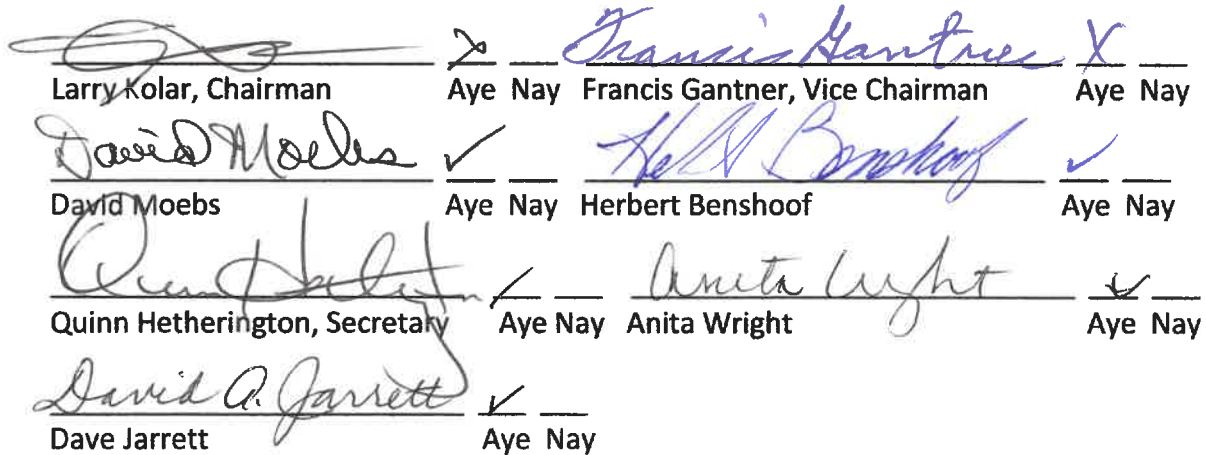 X Francis Gantner X
Larry Kolar, Chairman Aye Nay Francis Gantner, Vice Chairman Aye Nay
David Moebs ✓ Benshoof ✓
David Moebs Aye Nay Herbert Benshoof Aye Nay
Quinn ✓ Anita Wright ✓
Quinn Hetherington, Secretary Aye Nay Anita Wright Aye Nay
David A. Jarrett ✓
Dave Jarrett Aye Nay